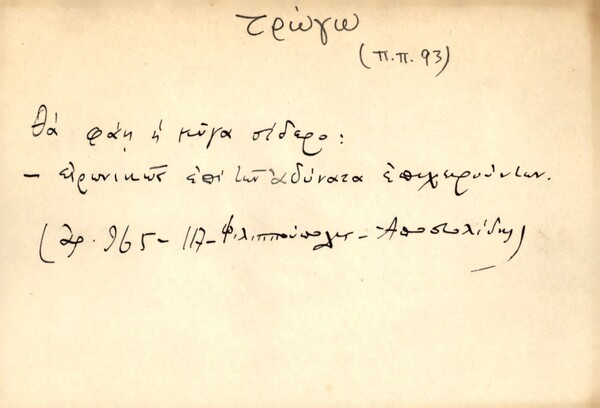 τρώγω
(π.π. 93)
Θά φάῃ ἡ μῦγα σίδερο:
– εἰρωνικῶς ἐπί τῶν ἀδύνατα ἐπιχειρούντων.
(Ἀρ. 965 – 117 – Φιλιππούπολις – Ἀποστολίδης)